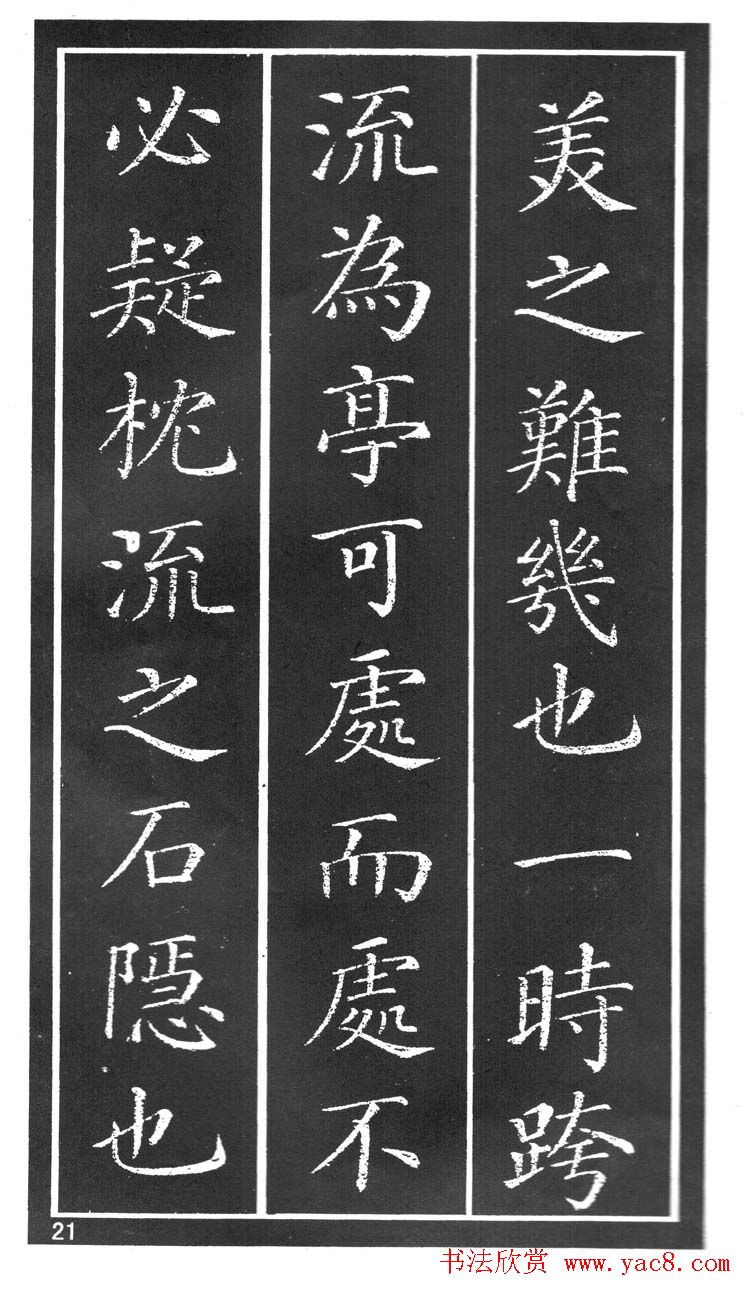 美之難幾也一時跨
流為亭可處而處不
必疑枕流之石隠也
21
书法欣赏 www.yac8.com